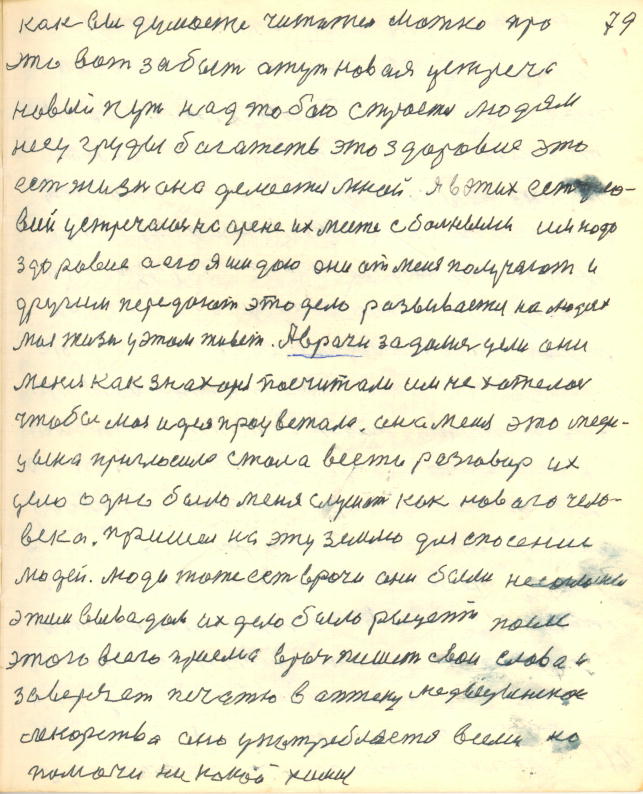 как вы думаете читатель можно про 79
это вот забыть а тут новая устреча
новый пут над тобою страсть людям
несу груды багатеть это здоровие это
ест жизн она делается мной. Я в этих
вий устречался на арене их месте с болными им надо
здоровие а его я им даю они от меня получают и
другим передают это дело развивается на людях
моя жизн у этом живет. А врачи задались цели они
меня как знахоря посчитали им не хателося
чтобы моя идея процветала. она меня это меди-
цына пригласила стала вести разговор их
дело одно было меня слушат как нового чело-
века. пришел на эту землю для спосения
людей. люди тоже ест врочи они были
этим вывадом их дело было рыцепт после
этого всего приема врач пишет свои слова и
заверяет печатю в аптеку
лекорства оно употребляется всеми но
помочи никакой химии